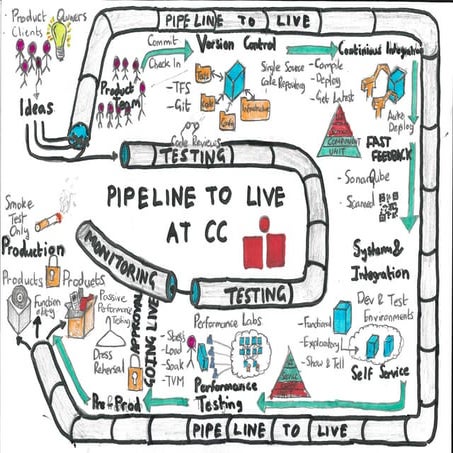 Product Owners
Clients
Ideas
PIPELINE TO LIVE
Product
Team
Commit
Check In
Version Control
- TFS
- Git
Single Source
Code Repository
Code Reviews
Continuous Integration
- Compile
- Deploy
- Get Latest
Auto
Deploy
COMPONENT
UNIT
FAST
FEEDBACK
- SonarQube
TESTING
PIPELINE TO LIVE
AT CC
MONITORING
TESTING
Systems &
Integration
Dev & Test
Environments
- Functional
- Exploratory
- Show & Tell
Self Service
Performance Labs
- Stress
- Load
- Soak
- TVM
Performance
Testing
APPROVAL
GOING LIVE
Pre-Prod
Dress
Rehersal
Passive
Performance
Testing
Smoke
Test
Only
Production
Products
Products
PIPE LINE TO LIVE